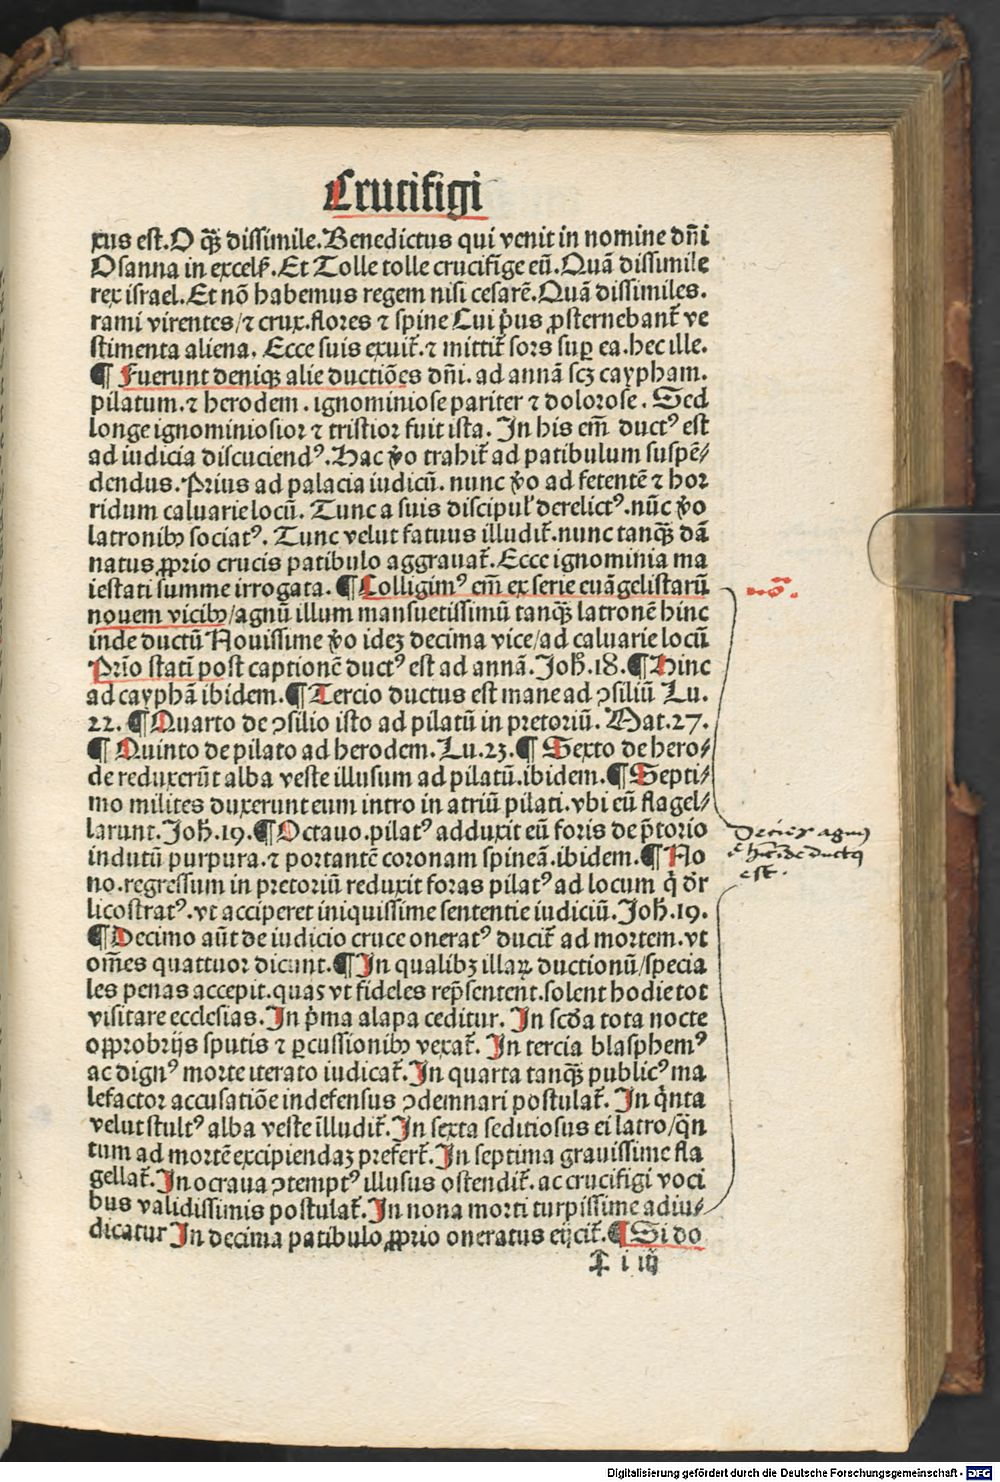 Crucifigi
xus est. O q̄ꝫ dissimile. Benedictus qui venit in nomine dn̄i
Osanna in excelꝭ. Et Tolle tolle crucifige eū. Quā dissimile
rex israel. Et nō habemus regem nisi cesarē. Quā dissimiles.
rami virentes/ ⁊ crux. flores ⁊ spine Cui pͥus ꝓsternebant̄ ve
stimenta aliena. Ecce suis exuit̄. ⁊ mittit̄ sors suꝑ ea. hec ille.
¶ Fuerunt deniqꝫ alie ductiōes dn̄i. ad annā scꝫ caypham.
pilatum. ⁊ herodem. ignominiose pariter ⁊ dolorose. Sed
longe ignominiosior ⁊ tristior fuit ista. In his em̄ ductꝰ est
ad iudicia discuciendꝰ. Hac ṽo trahit̄ ad patibulum suspē⸗
dendus. Prius ad palacia iudicū. nunc ṽo ad fetentē ⁊ hor
ridum caluarie locū. Tunc a suis discipul̕ derelictꝰ. nūc ṽo
latronibꝰ sociatꝰ. Tunc velut fatuus illudit̄. nunc tanq̄ꝫ dā
natus, ꝓprio crucis patibulo aggrauat̄. Ecce ignominia ma
iestati summe irrogata. ¶ Colligimꝰ em̄ ex serie euāgelistarū
nouem vicibꝰ/ agnū illum mansuetissimū tanq̄ꝫ latronē hinc
inde ductū Nouissime ṽo ideꝫ decima vice/ ad caluarie locū
Prīo statī post captionē ductꝰ est ad annā. Joh̄. 18. ¶ Hinc
ad cayphā ibidem. ¶ Tercio ductus est mane ad ꝯsiliū Lu.
22. ¶ Quarto de ꝯsilio isto ad pilatū in pretoriū. Mat. 27.
¶ Quinto de pilato ad herodem. Lu. 23. ¶ Sexto de hero⸗
de reduxerūt alba veste illusum ad pilatū. ibidem. ¶ Septi⸗
mo milites duxerunt eum intro in atriū pilati. vbi eū flagel⸗
larunt. Joh̄. 19. ¶ Octauo. pilatꝰ adduxit eū foris de p̄torio
indutū purpura. ⁊ portantē coronam spineā. ibidem. ¶ No
no. regressum in pretoriū reduxit foras pilatꝰ ad locum qͥ dr̄
licostratꝰ. vt acciperet iniquissime sententie iudiciū. Joh̄. 19.
¶ Decimo aūt de iudicio cruce oneratꝰ ducit̄ ad mortem. vt
om̄es quattuor dicunt. ¶ In qualibꝫ illaꝝ ductionū/ specia
les penas accepit. quas vt fideles rep̄sentent. solent hodie tot
visitare ecclesias. In pͥma alapa ceditur. In scd̄a tota nocte
opꝓbrijs sputis ⁊ ꝑcussionibꝰ vexat̄. In tercia blasphemꝰ
ac dignꝰ morte iterato iudicat̄. In quarta tanq̄ꝫ publicꝰ ma
lefactor accusatiōe indefensus ꝯdemnari postulat̄. In qͥnta
velut stultꝰ alba veste illudit̄. In sexta seditiosus ei latro/ qͥn
tum ad mortē excipiendaꝫ prefert̄. In septima grauissime fla
gellat̄. In octaua ꝯtemptꝰ illusus ostendit̄. ac crucifigi voci
bus validissimis postulat̄. In nona morti turpissime adiu⸗
dicatur In decima patibulo ꝓprio oneratus eijcit̄. ¶ Si do
T i iij
no.
Decies agnus
ē hīcīde ductꝰ
est.
Digitalisierung gefördert durch die Deutsche Forschungsgemeinschaft - DFG